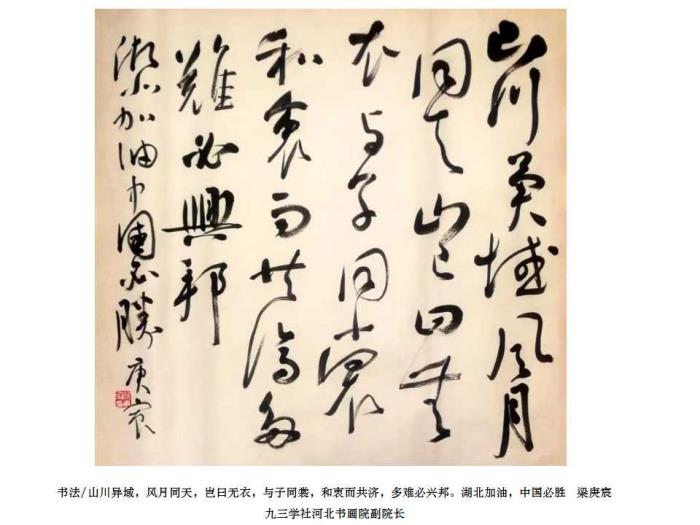 山川異域風月
同天豈曰無
衣与子同裳
和衷而共濟多
難必興邦
湖北加油中國必勝 庚宸
书法/山川异域，风月同天，岂曰无衣，与子同裳，和衷而共济，多难必兴邦。湖北加油，中国必胜 梁庚宸
九三学社河北书画院副院长